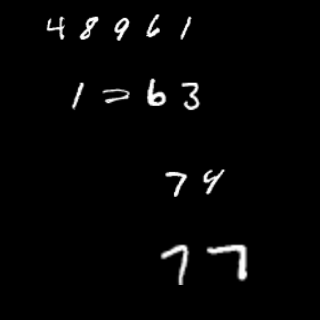 48961
1=63
74
77